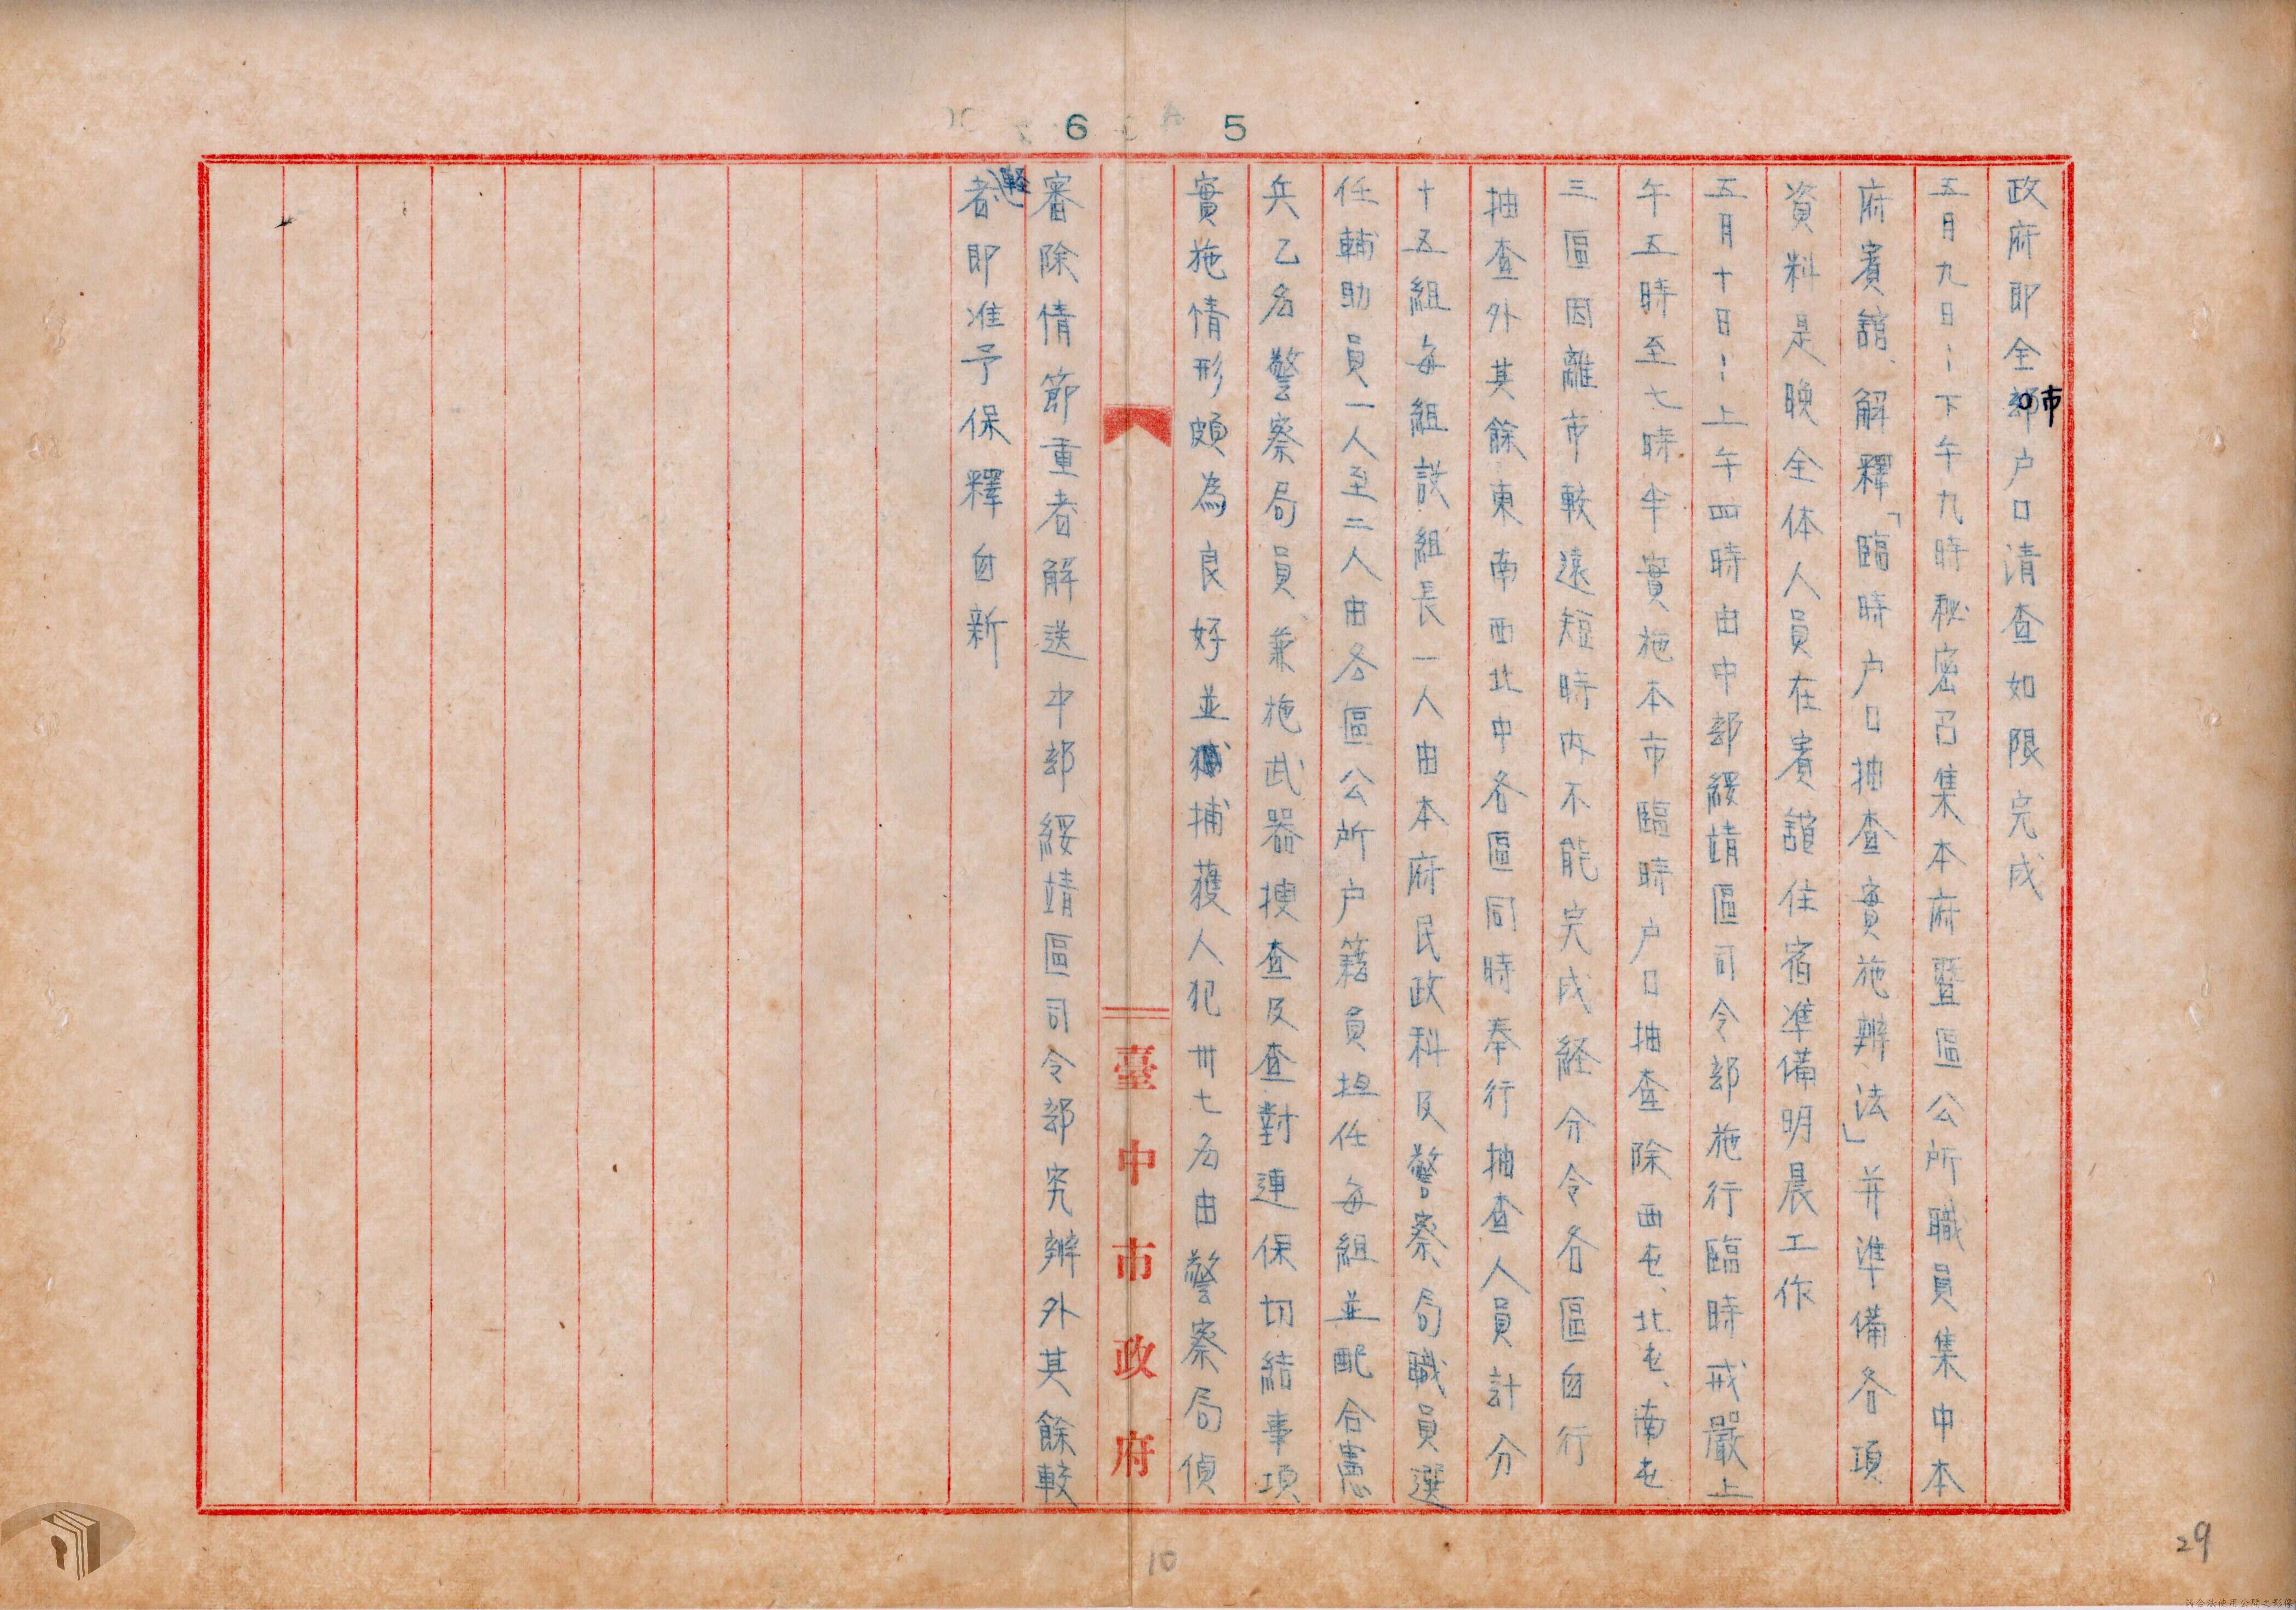 6 5
政府即全市戶口清查如限完成
五月九日：下午九時秘密召集本府暨區公所職員集中本
府賓館、解釋「臨時戶口抽查實施辦法」并準備各項
資料是晚全体人員在賓館住宿準備明晨工作
五月十日：上午四時由中部綏靖區司令部施行臨時戒嚴上
午五時至七時半實施本市臨時戶口抽查除西屯、北屯、南屯
三區因離市較遠短時內不能完成経分令各區自行
抽查外其餘東南西北中各區同時奉行抽查人員計分
十五組每組設組長一人由本府民政科及警察局職員選
任輔助員一人至二人由各區公所戶籍員担任每組並配合憲
兵乙名警察局員兼施武器搜查及查對連保切結事項
實施情形頗為良好並捕獲人犯卅七名由警察局偵
臺中市政府
審除情節重者解送中部綏靖區司令部究辦外其餘較
輕者即准予保釋自新
10
29
請合法使用公開之影像